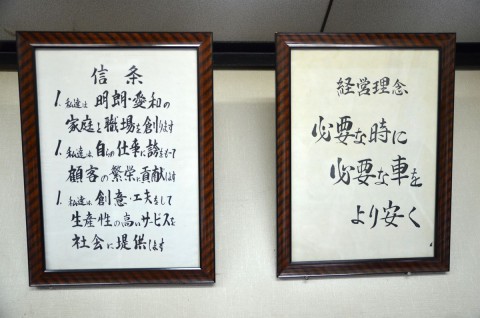 信条
1. 私達は 明朗・愛和の
家庭と職場を創ります
1. 私達は、自らの仕事に誇をもって
顧客の繁栄に貢献します
1. 私達は 創意・工夫をして
生産性の高いサービスを
社会に提供します
経営理念
必要な時に
必要な車を
より安く